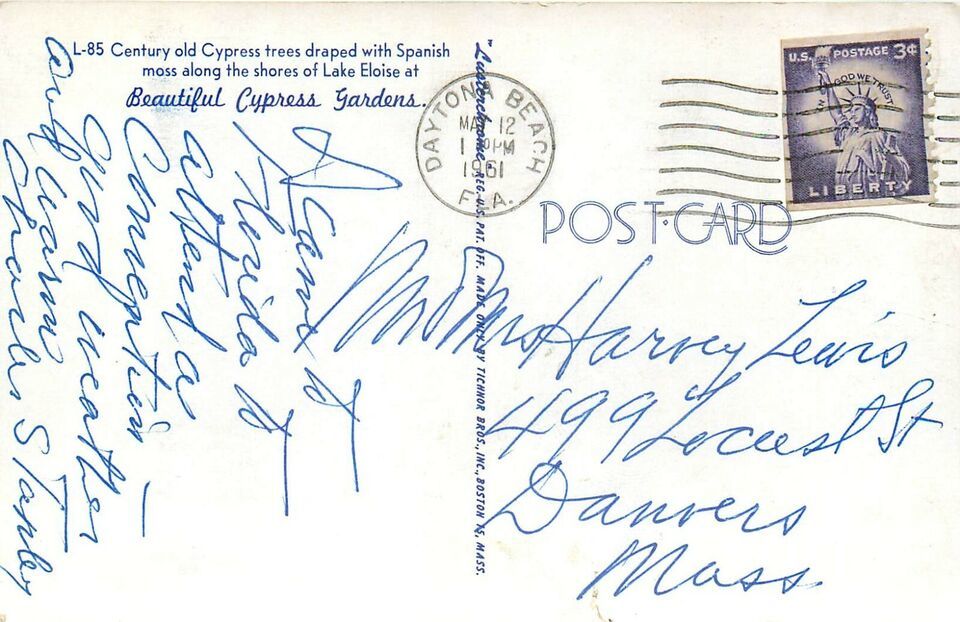 L-85 Century old Cypress trees draped with Spanish
moss along the shores of Lake Eloise at
Beautiful Cypress Gardens.
I Came to
Florida to
attend a
Convention –
Good weather
and warm
Charles Stapley
"Lusterchrome" REG. U.S. PAT. OFF. MADE ONLY BY TICHNOR BROS., INC., BOSTON 15, MASS.
DAYTONA BEACH
12
PM
1961
FLA.
U.S. POSTAGE 3¢
IN GOD WE TRUST
LIBERTY
POST CARD
Mr & Mrs Harvey Lewis
499 Locust St
Danvers
Mass